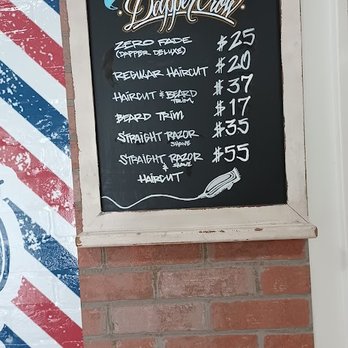 Dapper Crow
ZERO FADE $25
(DAPPER DELUXE)
REGULAR HAIRCUT $20
HAIRCUT & BEARD $37
TRIM
BEARD TRIM $17
STRAIGHT RAZOR $35
SHAVE
STRAIGHT RAZOR $55
SHAVE
&
HAIRCUT